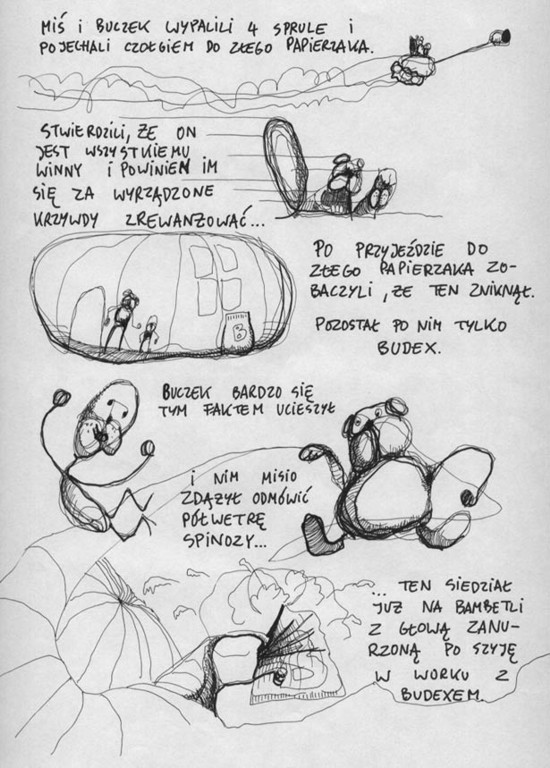 MIŚ I BUCZEK WYPALILI 4 SPRULE I
POJECHALI CZOŁGIEM DO ZŁEGO PAPIERZAKA.
STWIERDZILI, ŻE ON
JEST WSZYSTKIEMU
WINNY I POWINIEN IM
SIĘ ZA WYRZĄDZONE
KRZYWDY ZREWANŻOWAĆ...
PO PRZYJEŹDZIE DO
ZŁEGO PAPIERZAKA ZO-
BACZYLI, ŻE TEN ZNIKNĄŁ.
POZOSTAŁ PO NIM TYLKO
BUDEX.
B
BUCZEK BARDZO SIĘ
TYM FAKTEM UCIESZYŁ
I NIM MISIO
ZDĄŻYŁ ODMÓWIĆ
PÓŁWETRĘ
SPINOZY...
... TEN SIEDZIAŁ
JUŻ NA BAMBETLI
Z GŁOWĄ ZANU-
RZONĄ PO SZYJĘ
W WORKU Z
BUDEXEM.